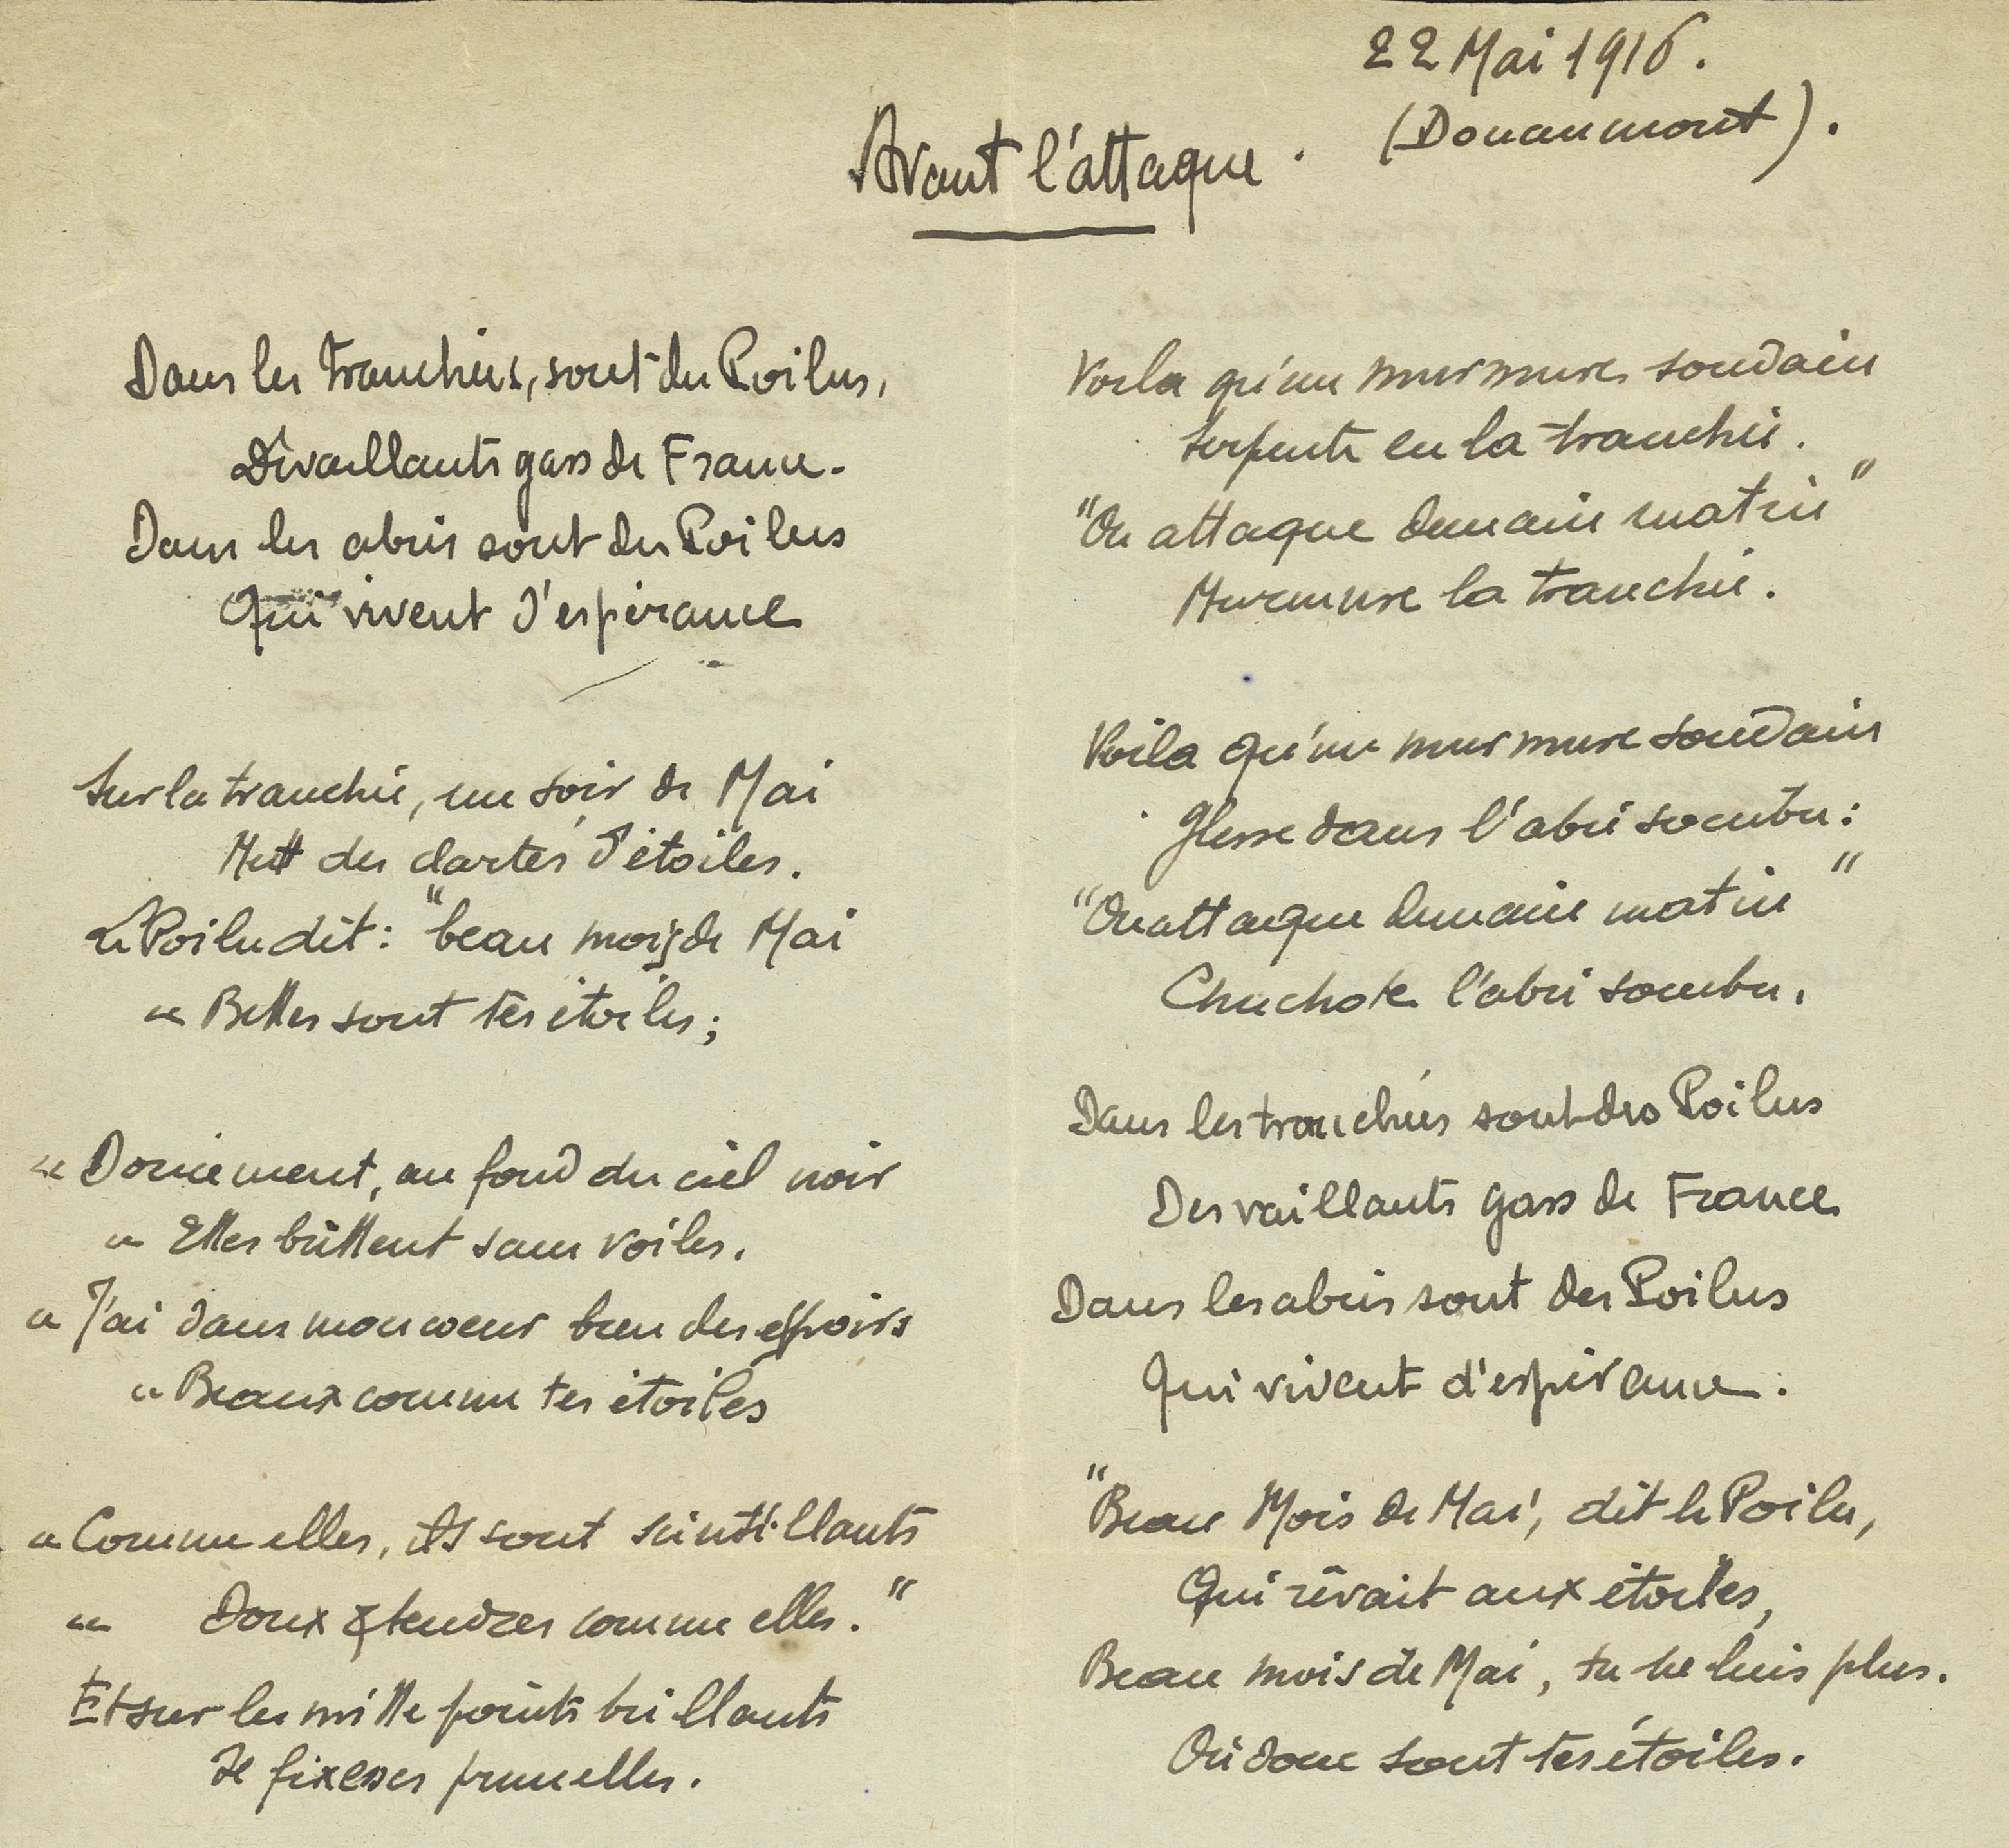 22 Mai 1916.
(Douaumont).
Avant l'attaque.
Dans les tranchées, sont des Poilus,
De vaillants gars de France.
Dans les abris sont des Poilus
Qui vivent d'espérance
Sur la tranchée, un soir de Mai
Mett des clartés d'étoiles.
Le Poilu dit : "beau mois de Mai
" Belles sont tes étoiles ;
" Doucement, au fond du ciel noir
" Elles brillent sans voiles.
" J'ai dans mon coeur bien des espoirs
" Beaux comme tes étoiles
" Comme elles, ils sont scintillants
" Doux & tendres comme elles."
Et sur les mille points brillants
Il fixe ses prunelles.
Voila qu'un murmure soudain
Serpente en la tranchée.
"On attaque demain matin"
Murmure la tranchée.
Voila qu'un murmure soudain
Glisse dans l'abri sombre :
"On attaque demain matin"
Chuchote l'abri sombre.
Dans les tranchées sont des Poilus
Des vaillants gars de France
Dans les abris sont des Poilus
Qui vivent d'espérance.
"Beau Mois de Mai, dit le Poilu,
Qui rêvait aux étoiles,
Beau mois de Mai, tu ne luis plus.
Où donc sont tes étoiles.